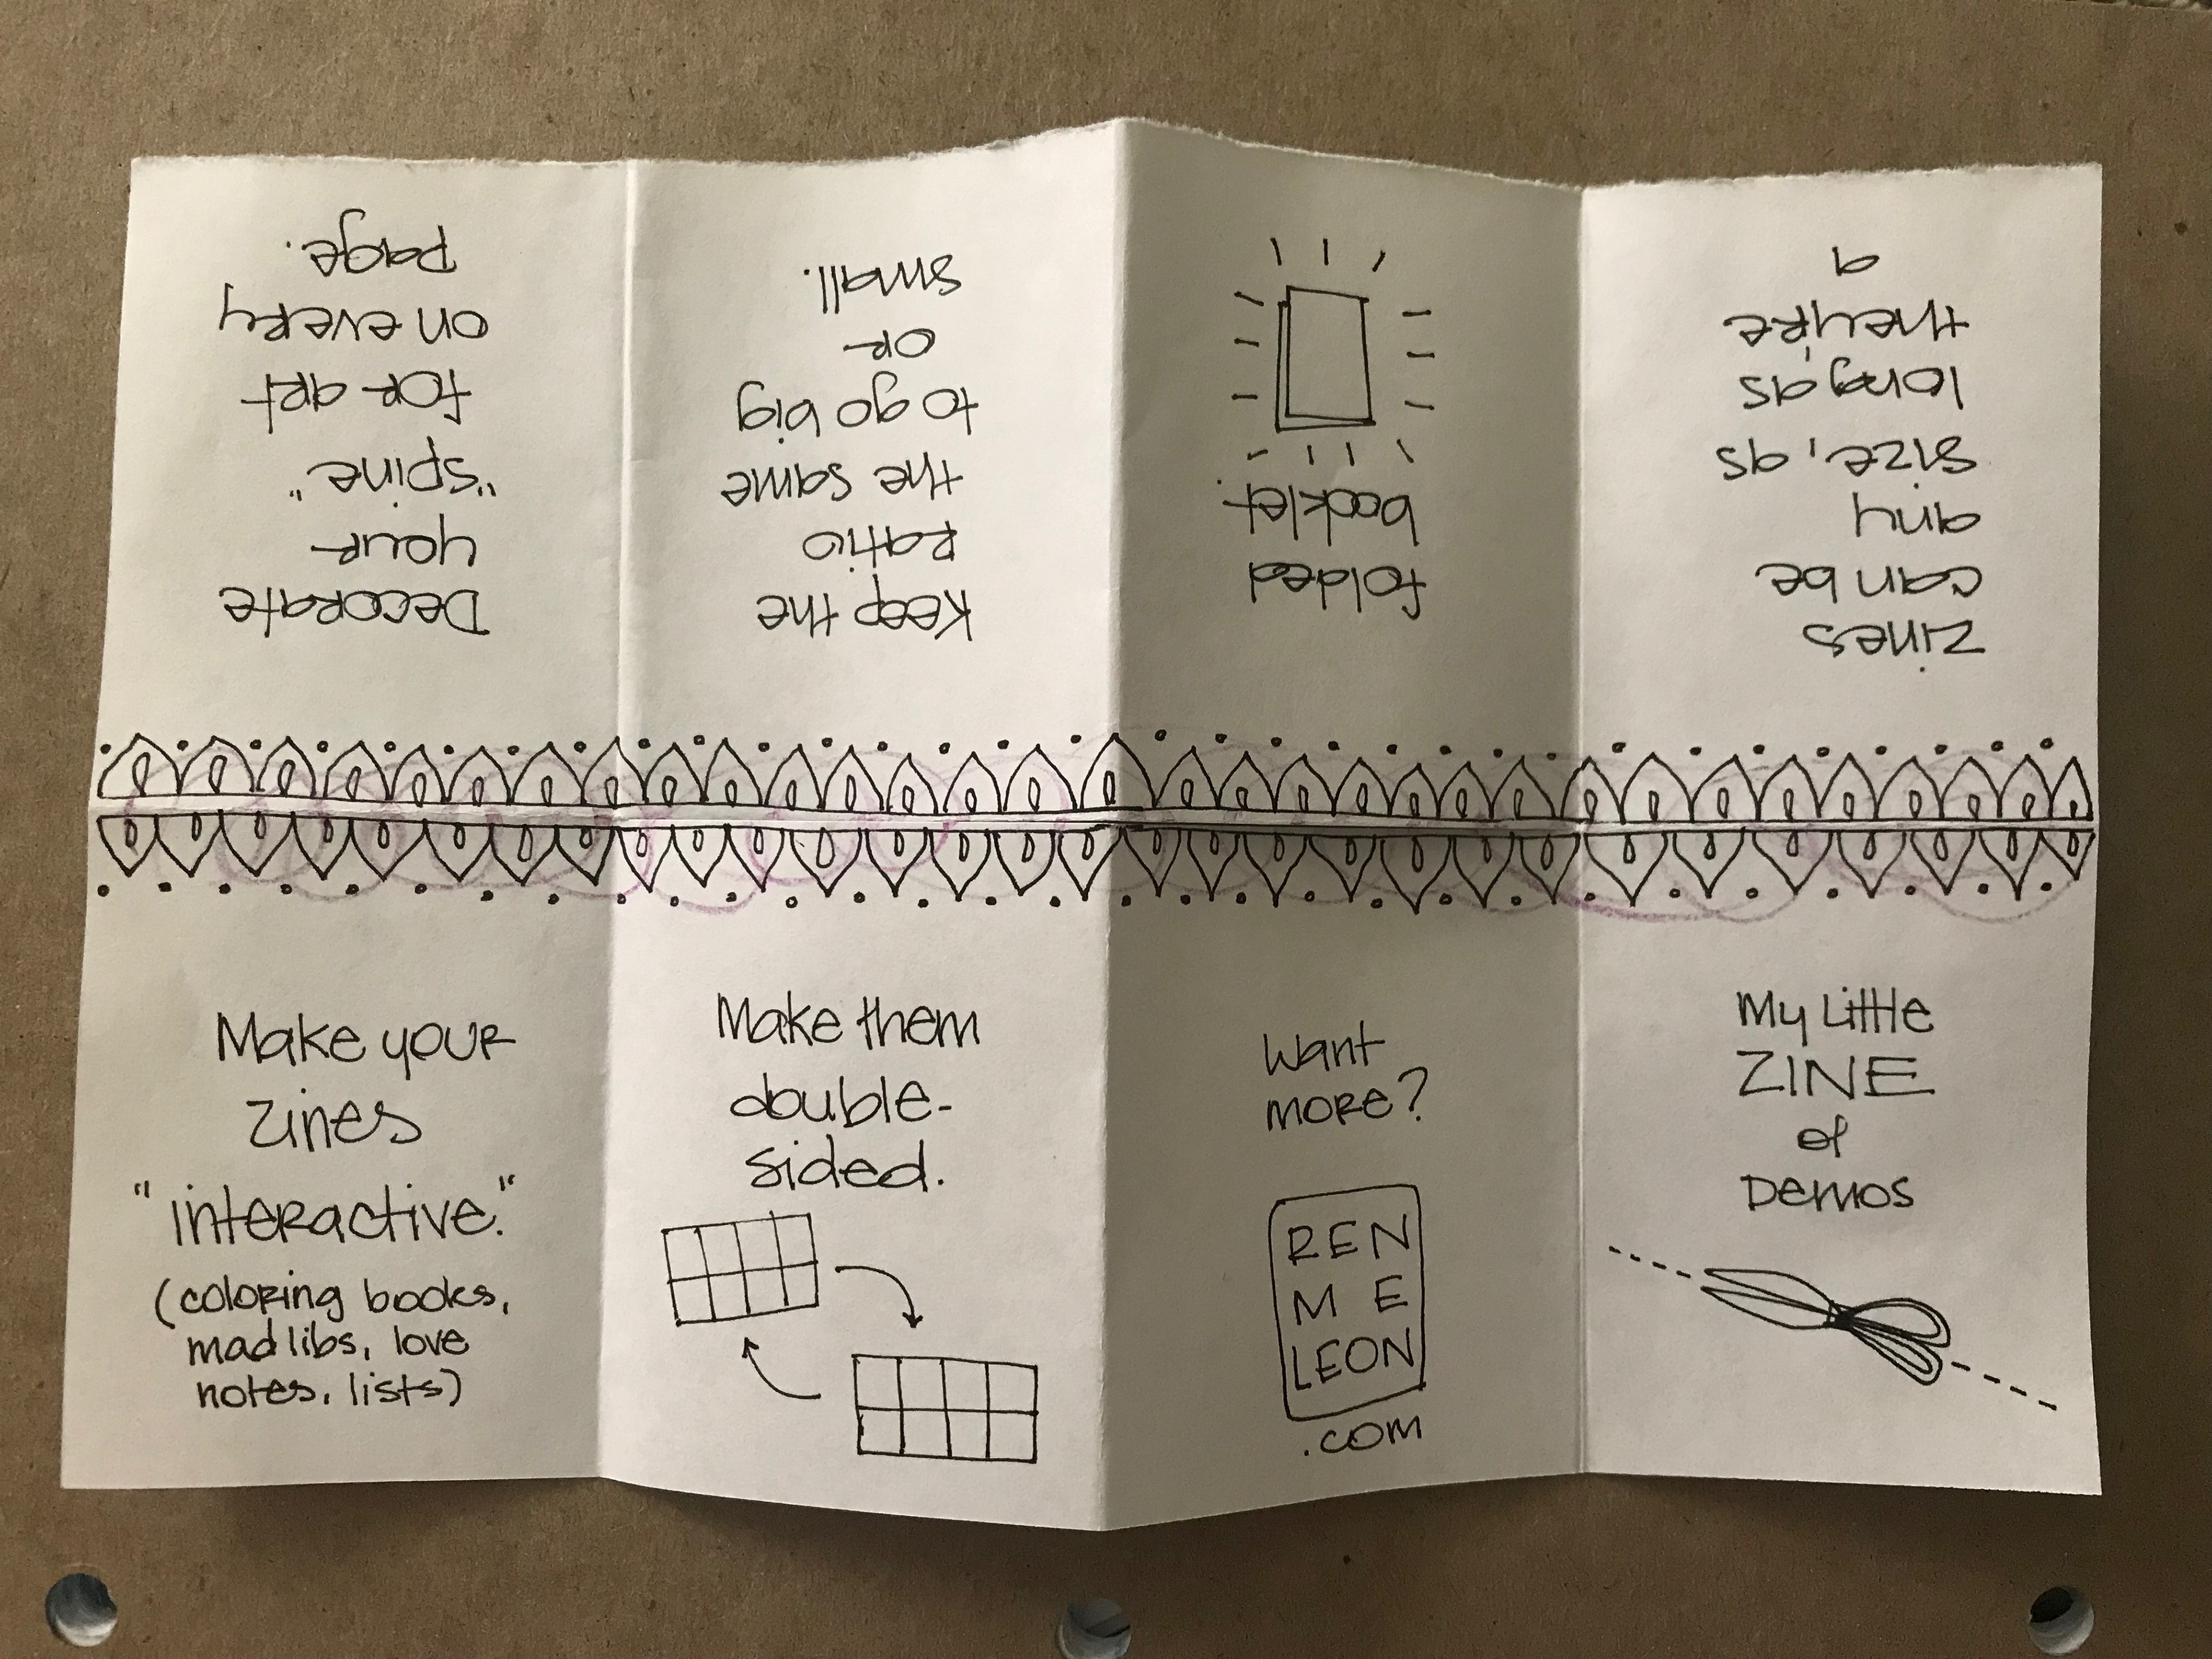 My Little
ZINE
of
Demos
Zines
can be
any
size, as
long as
they're
a
folded
booklet.
Keep the
ratio
the same
to go big
or
small.
Decorate
your
"spine"
for art
on every
page.
Make your
zines
"interactive."
(coloring books,
mad libs, love
notes, lists)
Make them
double-
sided.
Want
more?
REN
M E
LEON
.com